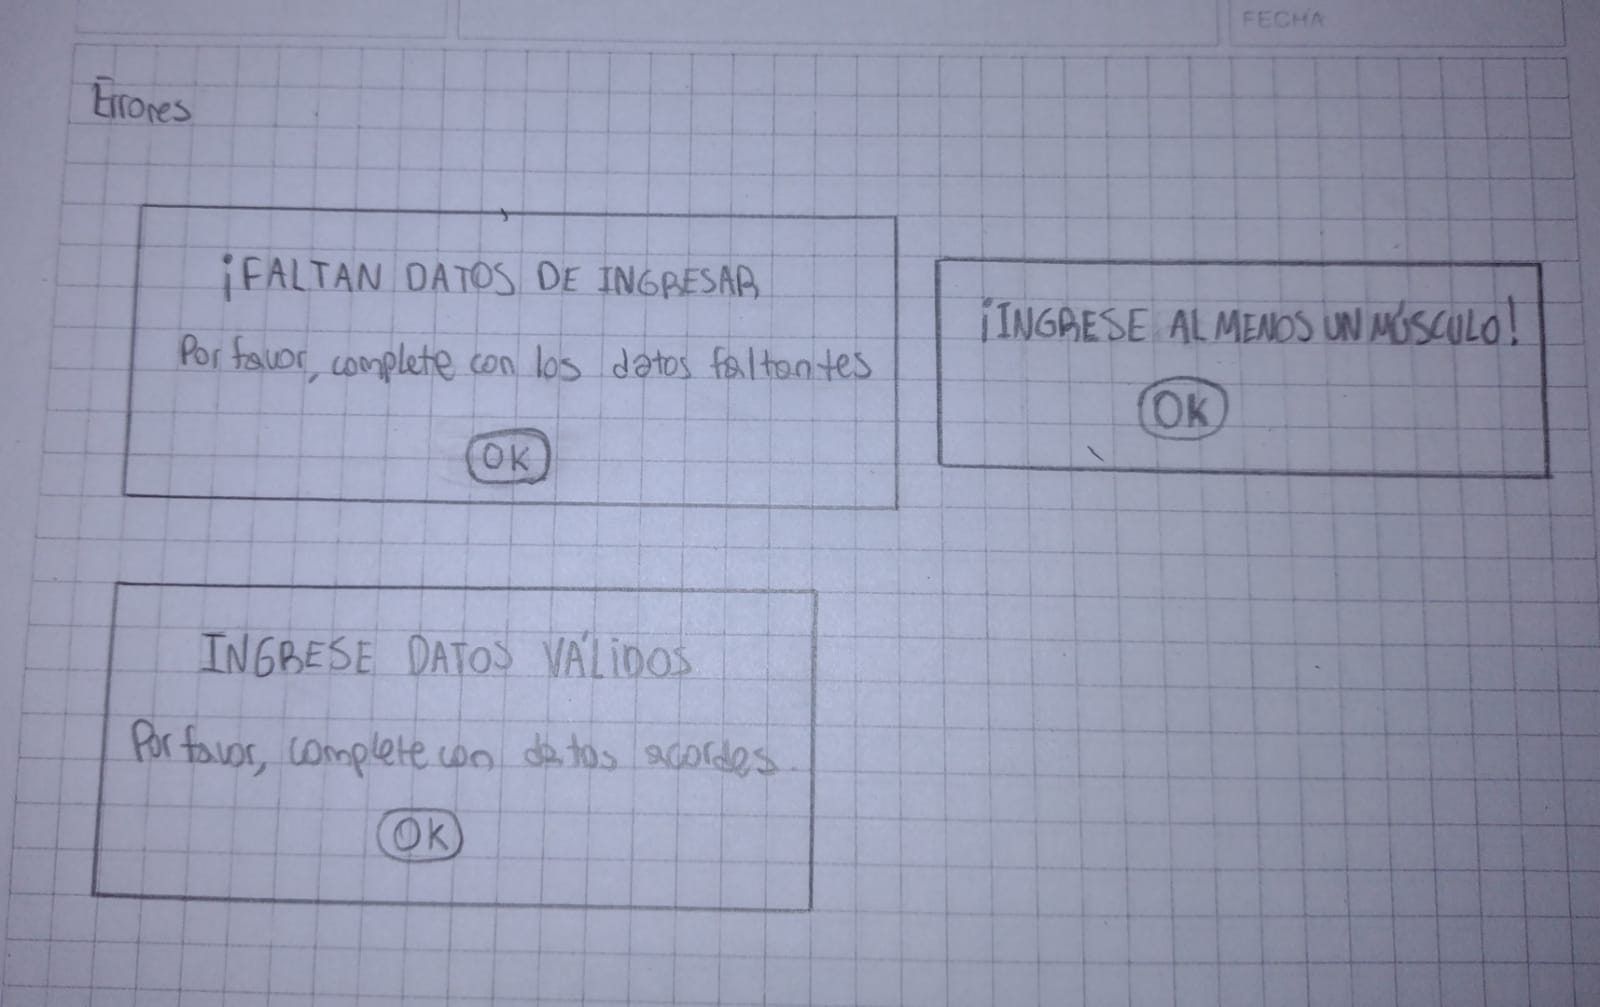 FECHA
Errores
¡FALTAN DATOS DE INGRESAR
Por favor, complete con los datos faltantes
OK
¡INGRESE AL MENOS UN MÚSCULO!
OK
INGRESE DATOS VÁLIDOS
Por favor, complete con datos acordes
OK